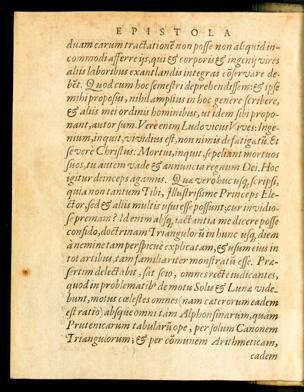 EPISTOLA
duam earum tractationē non posse non aliquid in-
commodi afferre ijs, qui & corporis & ingenij vires
alijs laboribus exantlandis integras cōservare de-
bēt. Quod cum hoc semestri deprehendissem: & ipse
mihi proposui, nihil amplius in hoc genere scribere,
& alijs mei ordinis hominibus, ut idem sibi propo-
nant, autor sum. Verè enim Ludovicus Vives: Inge-
nium, inquit, vividius est, non nimis defatigatū. Et
severè Christus: Mortui, inquit, sepeliant mortuos
suos, tu autem vade & annuncia regnum Dei. Hoc
igitur deinceps agamus. Quæ verò hucusq; scripsi,
quia non tantum Tibi, Illustrissime Princeps Ele-
ctor, sed & alijs multis usui esse possunt; cur invidio-
sè premam? Id enim absq; iactantia me dicere posse
confido, doctrinam Triangulorū in hunc usq; diem
à nemine tam perspicuè explicatam, & usum eius in
tot artibus, tam familiariter monstratū esse. Præ-
sertim delectabit, sat scio, omnes rectè iudicantes,
quod in problematibᵘ de motu Solis & Lunæ vide-
bunt, motus cœlestes omnes (nam cæterorum eadem
est ratio) absque omni tam Alphonsinarum, quàm
Prutenicarum tabularū ope, per solum Canonem
Triangulorum; & per cōmunem Arithmeticam,
eadem